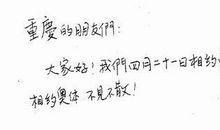 重慶的朋友們：
大家好！我們四月二十一日相約
相約奧体 不見不散！